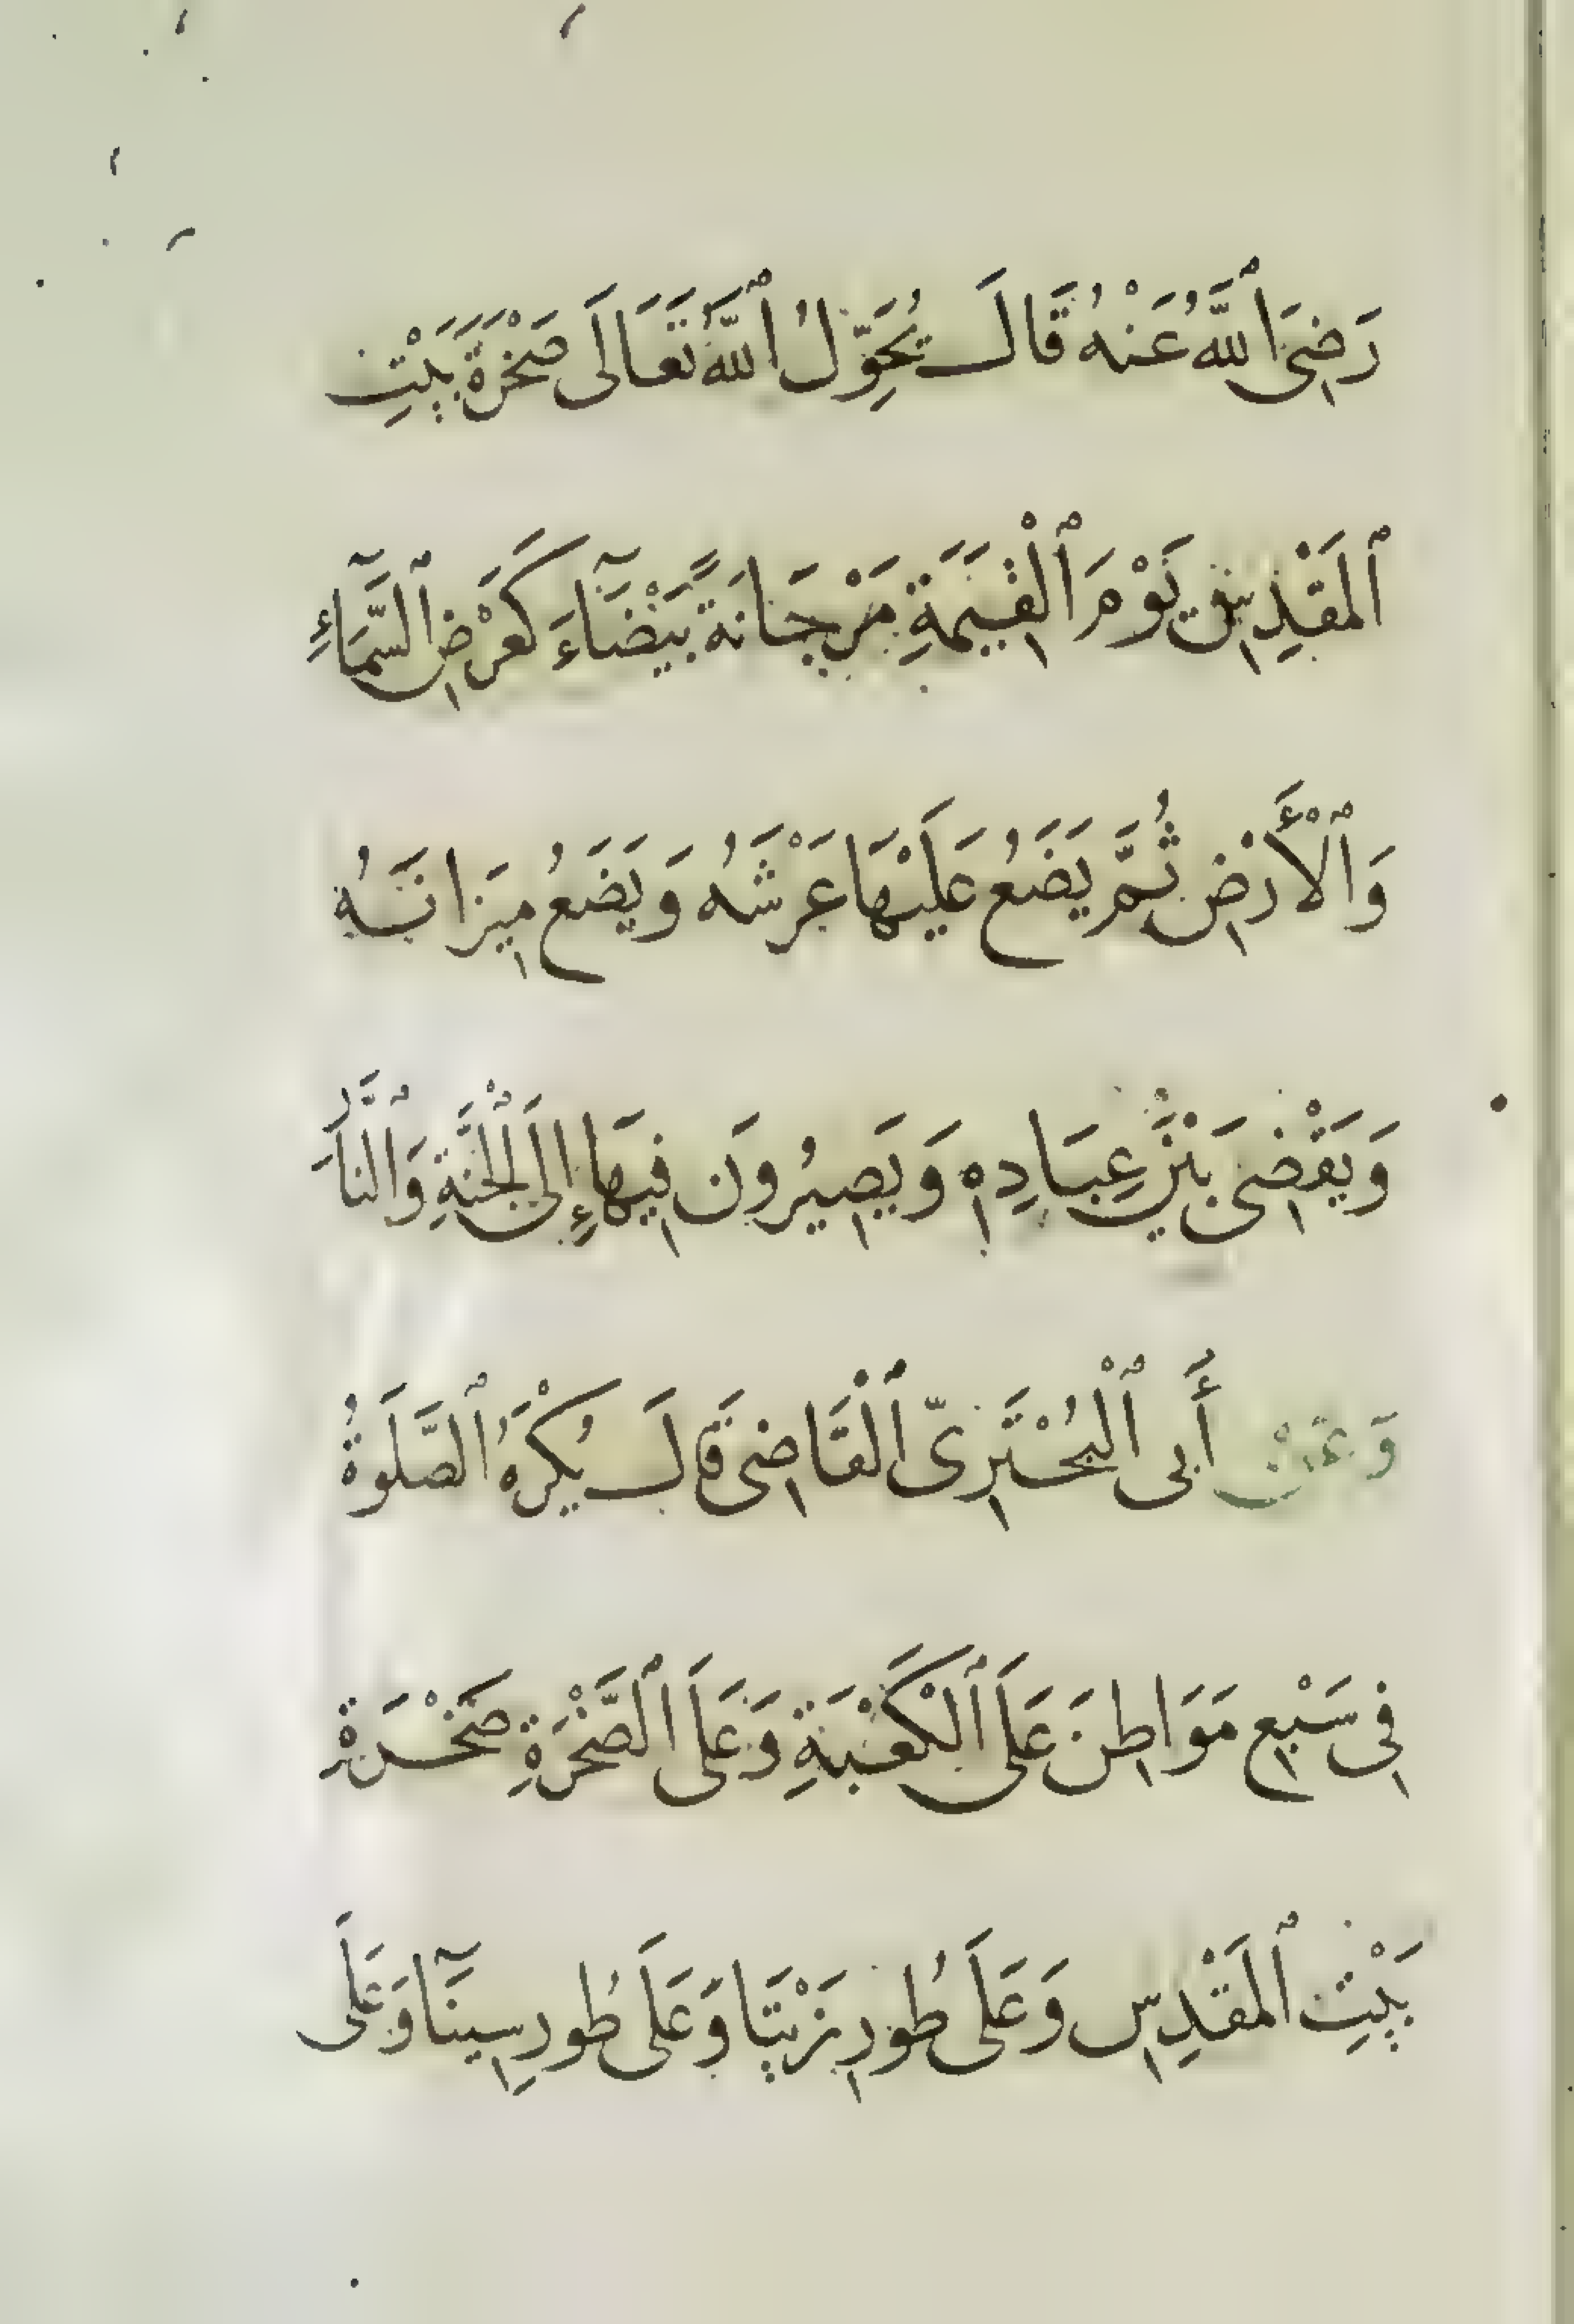 رَضِيَ ٱللَّهُ عَنْهُ قَالَ يُحَوِّلُ ٱللَّهُ تَعَالَى صَخْرَةَ بَيْتِ
ٱلمَقْدِسِ يَوْمَ ٱلْقِيَٰمَةِ مَرْجَانَةً بَيْضَآءَ كَعَرْضِ ٱلسَّمَآءِ
وَٱلْأَرْضِ ثُمَّ يَضَعُ عَلَيْهَا عَرْشَهُ وَيَضَعُ مِيزَانَهُ
وَيَقْضِى بَيْنَ عِبَادِهِ وَيَصِيرُونَ فِيهَا إِلَى ٱلْجَنَّةِ وَٱلنَّارِ
وَعَنْ أَبِى ٱلْبُخْتَرِىّ ٱلْقَاضِى قَالَ يُكْرَهُ ٱلصَّلَوٰةُ
فِى سَبْعِ مَوَاطِنَ عَلَى ٱلْكَعْبَةِ وَعَلَى ٱلصَّخْرَةِ صَخْرَةِ
بَيْتِ ٱلمَقْدِسِ وَعَلَى طُورِ زَيْتَا وَعَلَى طُورِ سِينَآ وَعَلَى